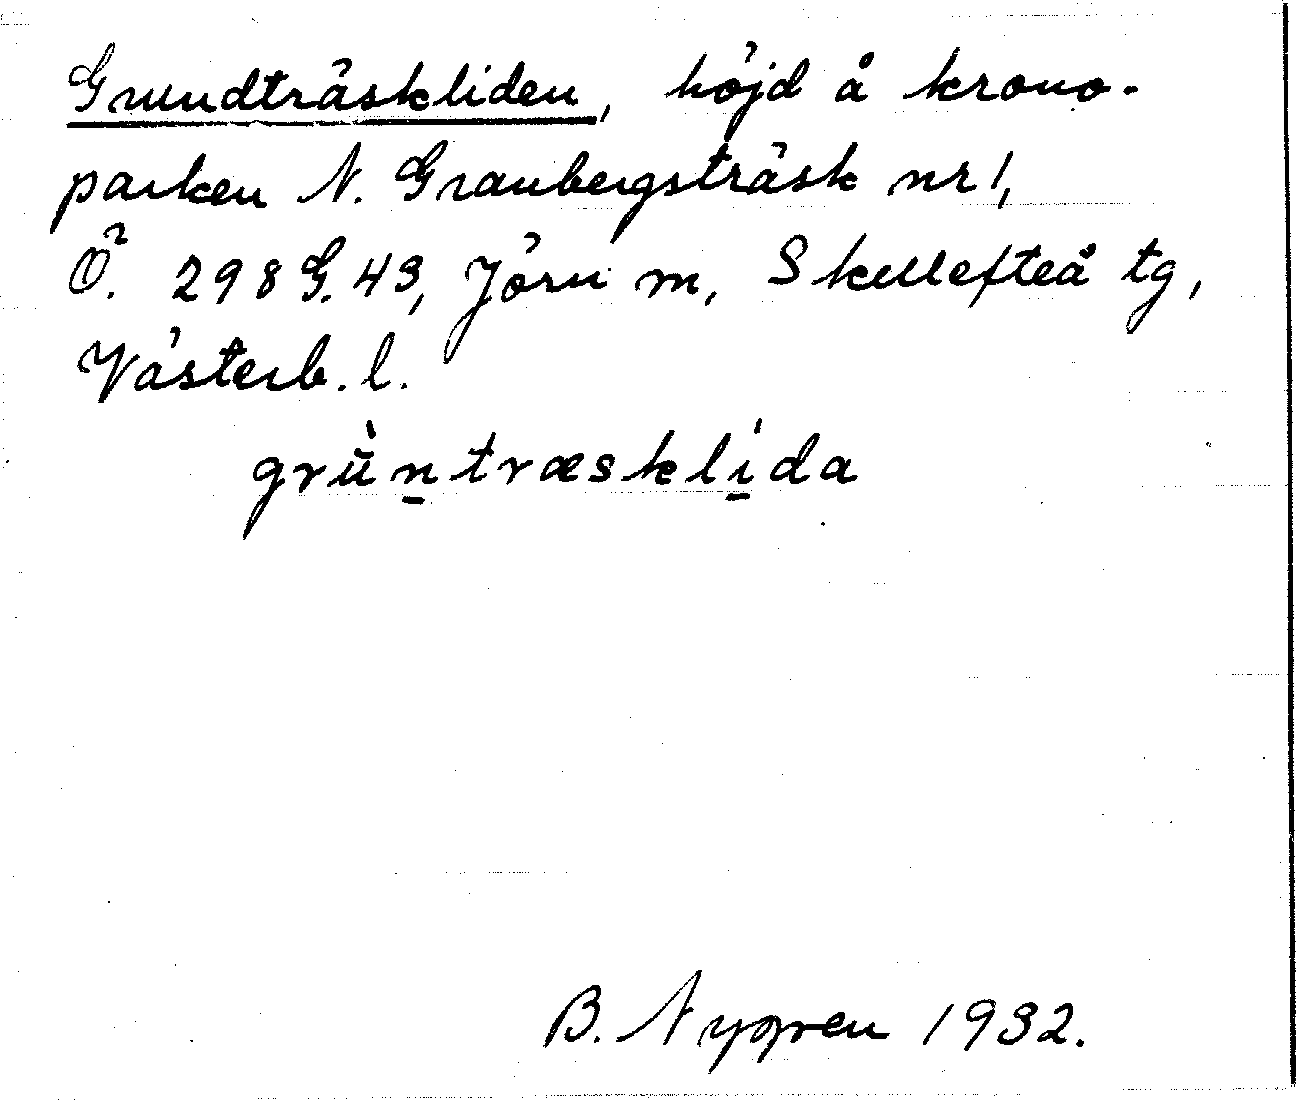 Grundträskliden, höjd å krono-
parken N. Granbergsträsk nr 1,
Ö. 298 G. 43, Jörn m, Skellefteå tg,
Västerb. l.
grùn̲træsklí̲da
B. Nygren 1932.